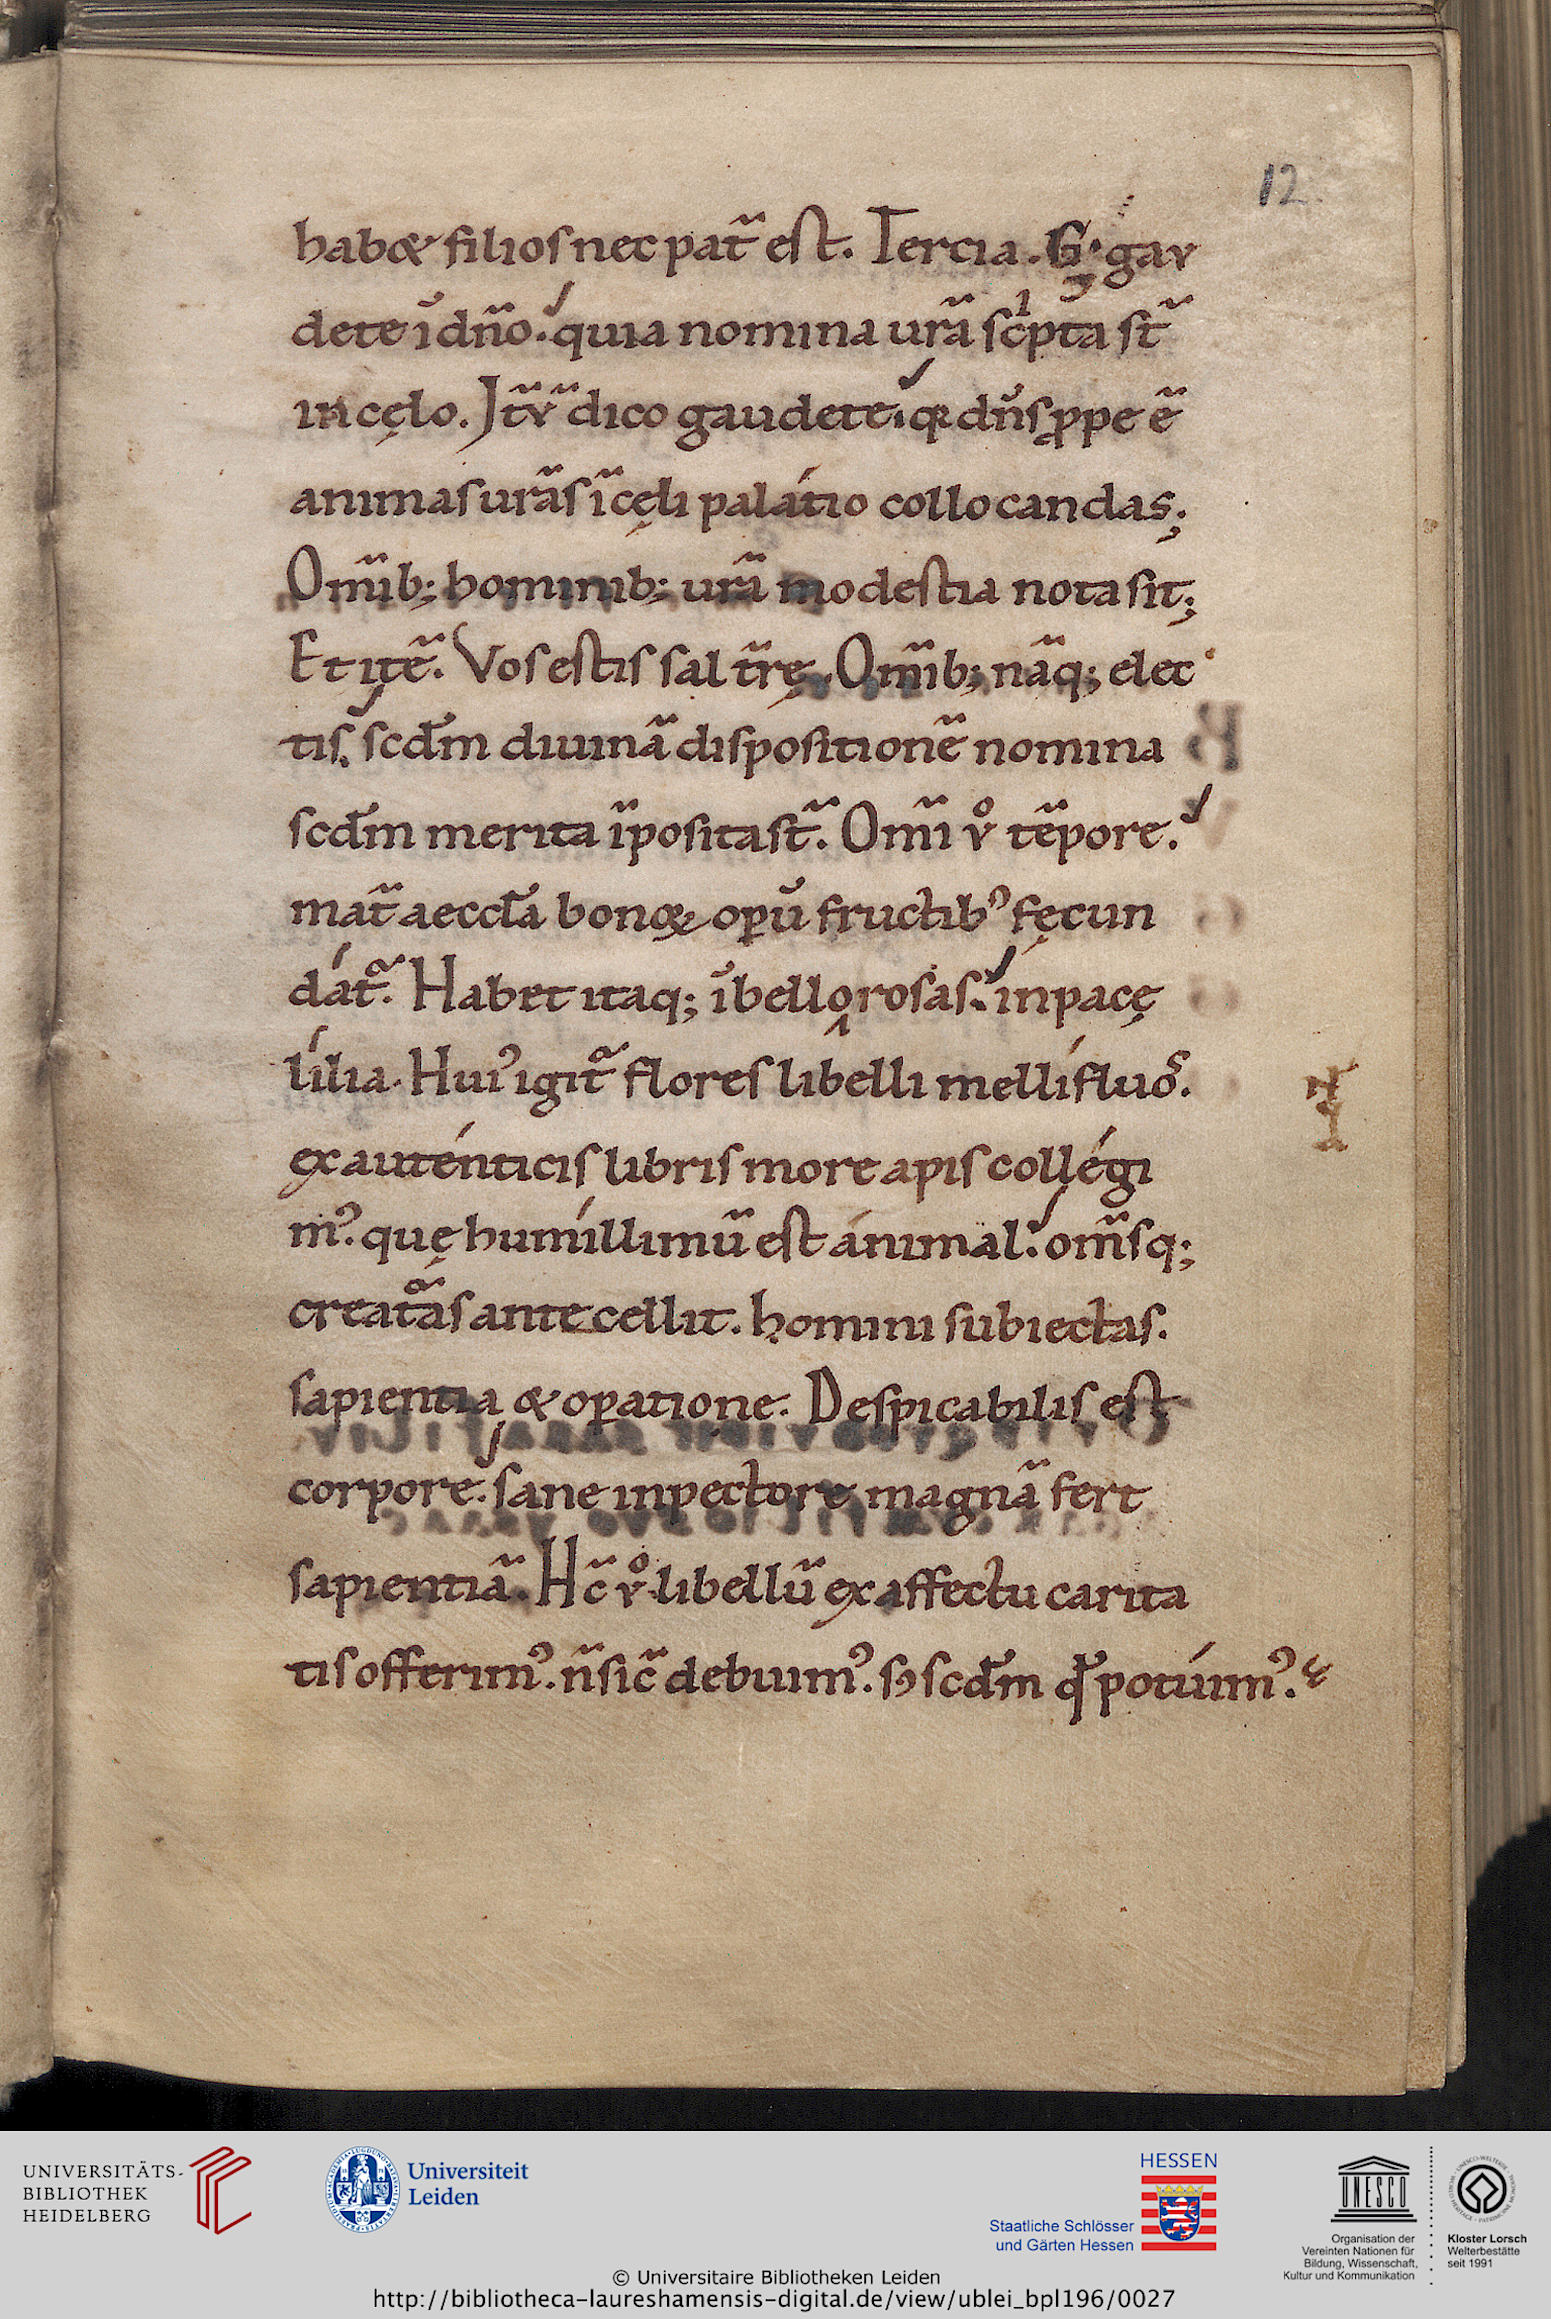 12
hab& filios nec pat̄ est. Tercia. G. gau
dete ī dn̄o. quia nomina ur̄a sc̍pta st̄
in cęlo. It̄ v̄ dico gaudete. qr dn̄s ꝓpe ē
animas ur̄as ī cęli palátio collocandas;
Om̄ib; hominib; ur̄a modestia nota sit;
Et itē. Vos estis sal t̄rę. Om̄ib; nāq; elec
tis. scdm̄ diuinā dispositionē nomina
scdm̄ merita īposita st̄. Om̄i vͦ tēpore.
mat̄ aeccl̄a bonoꝝ oꝑū fructibꝰ fęcun
dát᷑. Habet itaq; ī bello rosas. in pacę
lília. Huiꝰ igit᷑ flores libelli mellífluoˢ.
ex auténticis libris more apis collégi
mꝰ. quę humíllimū est ánimal. om̄sq;
creat᷑as antecellit. homini subiectas.
sapientia & oꝑatione. Despicabilis est
corpore. sane in pectore magnā fert
sapientiā. Hc̄ vͦ libellū ex affectu carita
tis offerimꝰ. n̄ sic̄ debuimꝰ. sꝫ scdm̄ qd̄ potúimꝰ. &
UNIVERSITÄTS-
BIBLIOTHEK
HEIDELBERG
Universiteit
Leiden
HESSEN
Staatliche Schlösser
und Gärten Hessen
UNESCO
Organisation der
Vereinten Nationen für
Bildung, Wissenschaft,
Kultur und Kommunikation
Kloster Lorsch
Welterbestätte
seit 1991
© Universitaire Bibliotheken Leiden
http://bibliotheca-laureshamensis-digital.de/view/ublei_bpl196/0027